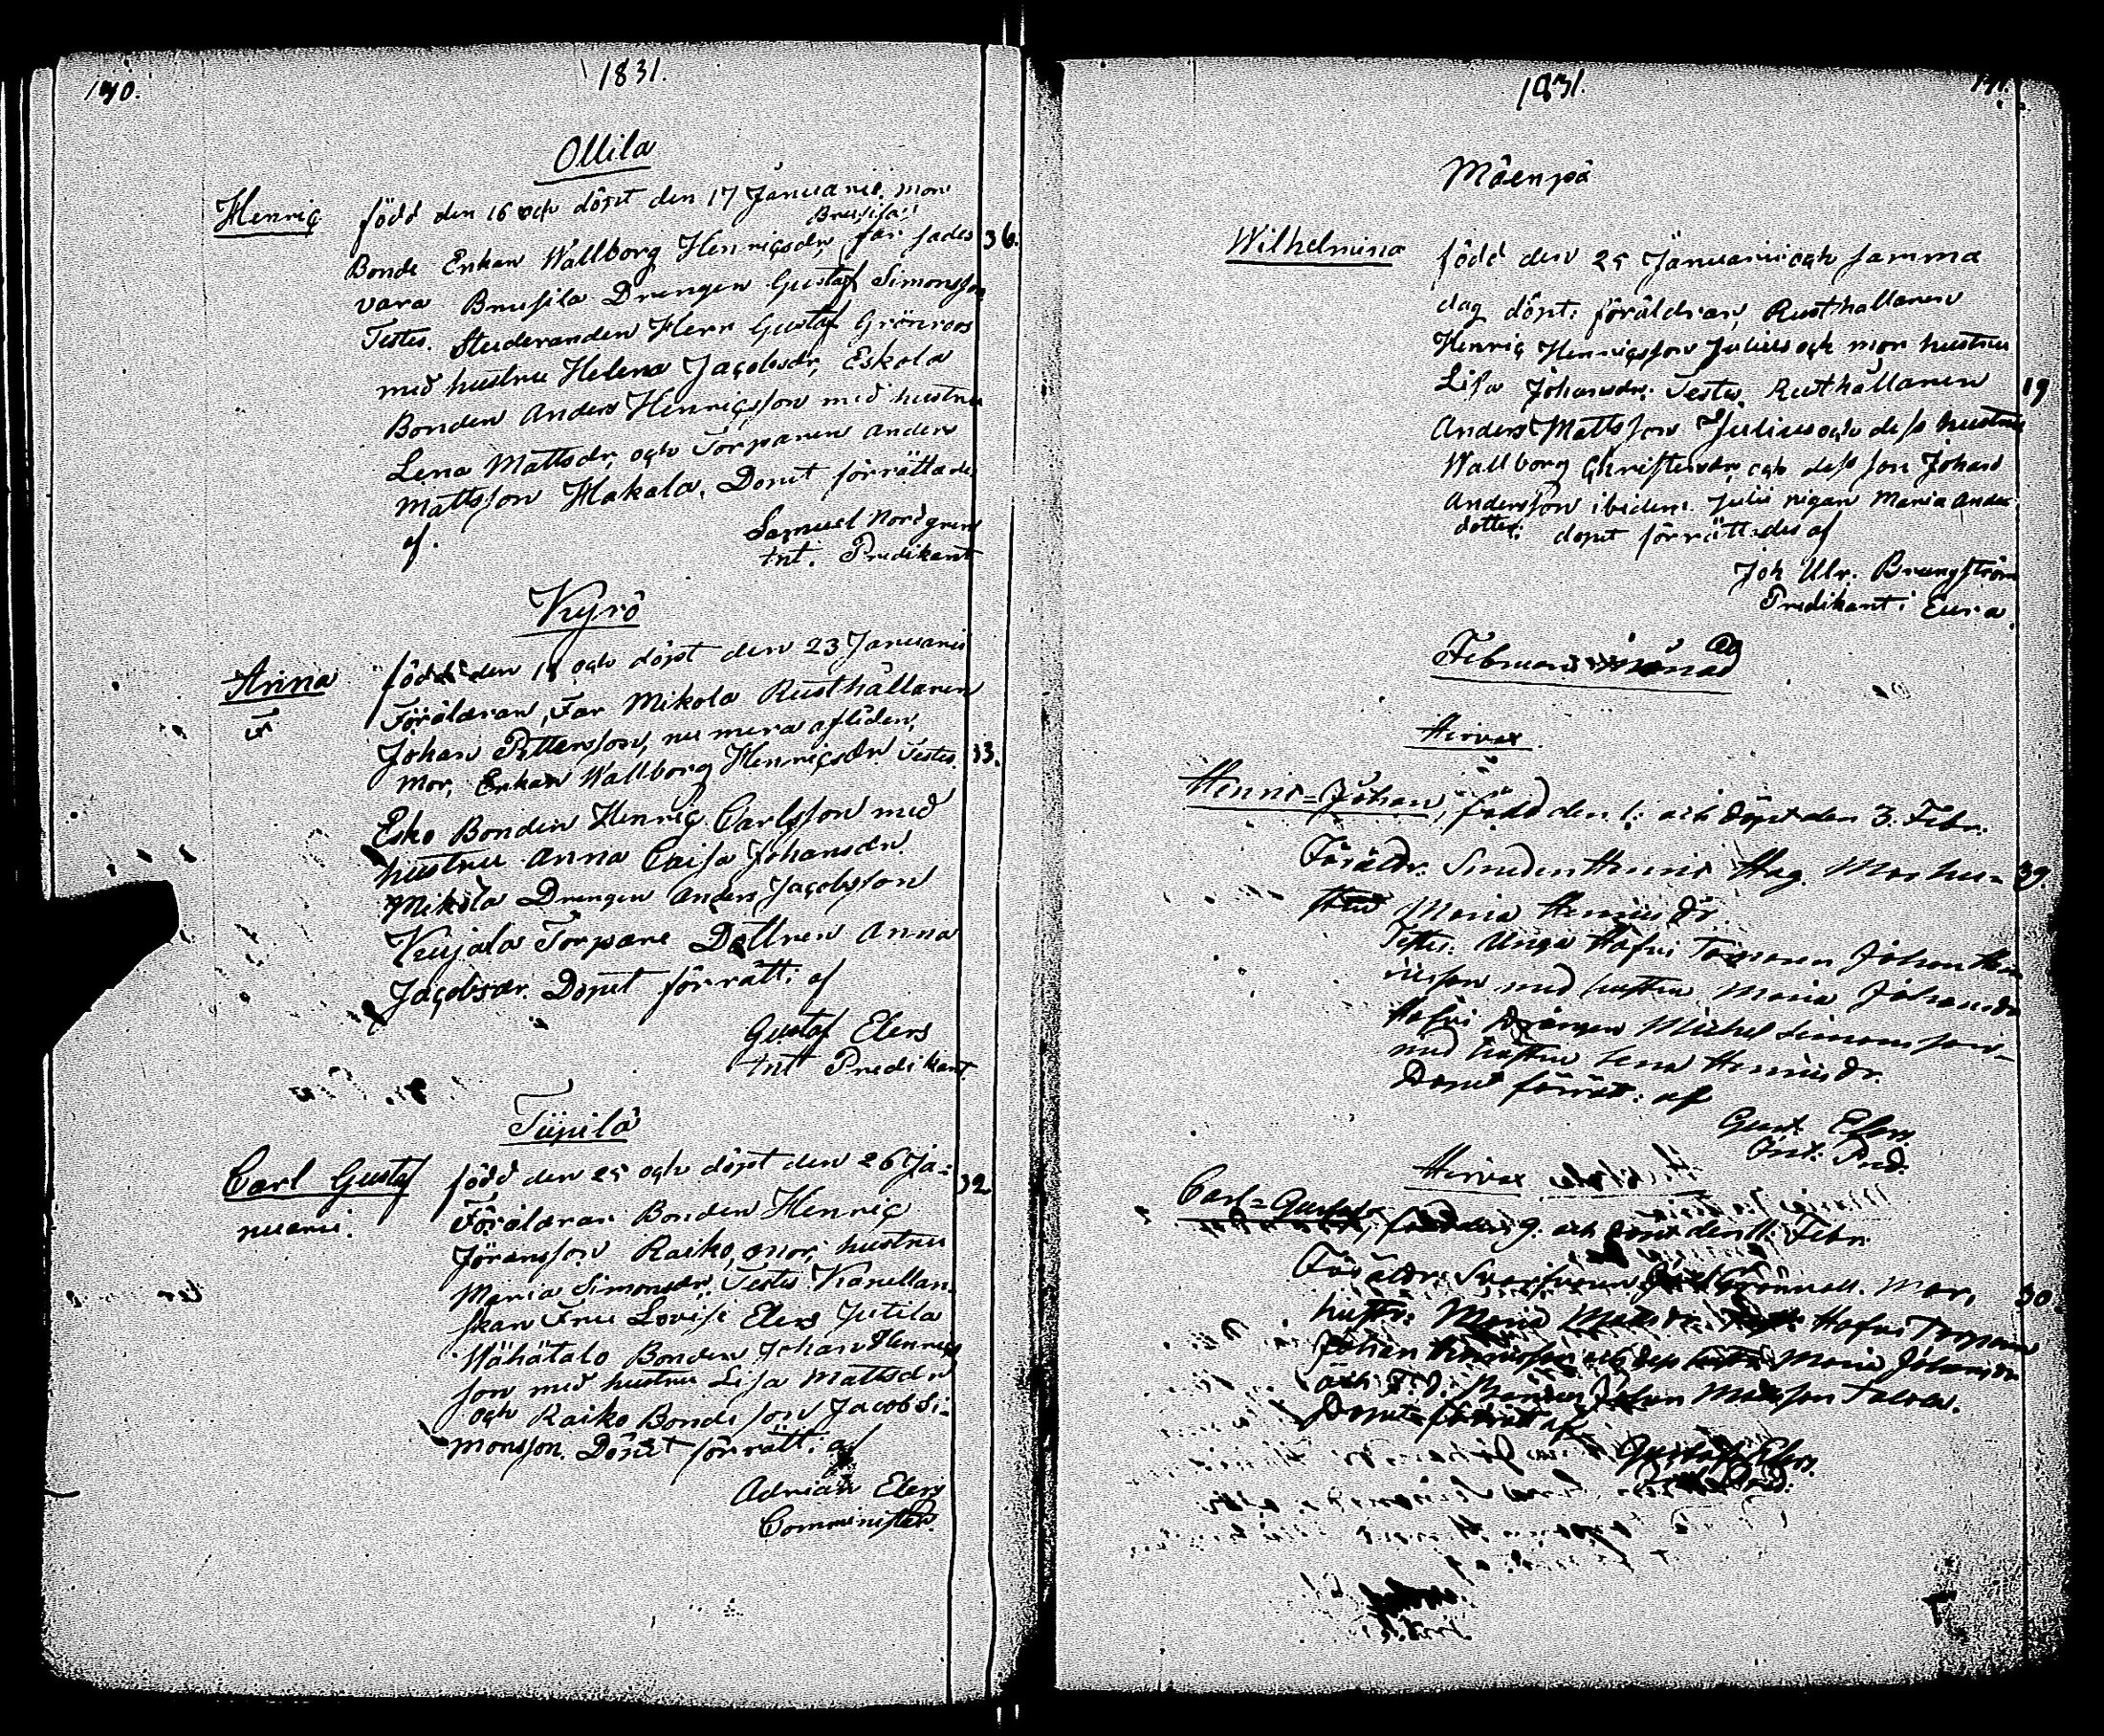 170.
1831.
Ollila
Henric född den 16 och döpt den 17 Januarii. mor
Brusila
Bonde Enkan Wallborg Henricsdr, far sades 36.
vara Brusila Drengen Gustaf Simonsson
Testes. Studeranden Herr Gustaf Grönroos
med hustru Helena Jacobsdr, Eskola
Bonden Anders Henricsson med hustru
Lena Mattsdr, och Torparen Anders
Mattsson Hakala. Doput förrättades
af. Samuel Nordgren
Int. Predikant
Kyrö
Anna född den 18 och döpt den 23 Januarii
Föräldrar, Far Mikola Rusthållaren
Johan Pettersson, nu mera afliden,
Mor, Enkan Wallborg Henricsdr Testes. 33.
Esko Bonden Henric Carlsson med
hustru Anna Caisa Johansdr.
Mikola Drengen Anders Jacobsson
Kujala Torpare Dottren Anna
Jacobsdr. Doput förrätt. af
Gustaf Elers
Int Predikant.
Tiipilä
Carl Gustaf född den 25 och döpt den 26 Ja= 32
nuarii. Föräldrar Bonden Henric
Jöransson Raiko, mor, hustru
Maria Simonsdr. Testes
skan Fru Lovisa Elers Jutila
Wähätalo Bonden Johan Henrics
son med hustru Lisa Mattsdr
och Raiko Bonde son Jacob Si=
monsson. Döpet förrätt. af
Adrian Elers
Comminister.
1831.
171.
Mäenpä
Wilhelmina född den 25 Januarii och samma
dag döpt. föräldrar, Rusthållaren
Henric Henricsson Julius och mor hustru
Lisa Johansdr. Testes. Rusthållaren 19
Anders Mattsson Julius och dess hustru
Wallborg Christersdr, och dess son Johan
Andersson ibidem. Julii pigan Maria Anders
dotter. dopet förrättades af
Joh Ulr. Brungström
Predikant i Eura.
Februarii Månad
Hirvax
Henric=Johan, född den 1. och döpt den 3. Febr.
Föräldr. Smeden Henric Hag. Mor hu= 39.
stru Maria Henricsdr.
Testes. Unga Hafvi Torparen Johan Hen
ricsson med hustru Maria Johansdr
Hafvi Drängen Michel Simonsson
med hustru Lena Henricsdr.
Doput förrät. af
Gust. Elers.
Ord. Pred.
Hirvax
Carl=Gustaf, född den 9. och döpt den 11. Febr.
Föräldr. Mor, 30
hustr. Maria Matsdr. Hafvi Torparen
Johan Henricsson och dess hustr. Maria Johansdr
och Johan Matsson
Doput förrätt af
Gustaf Elers.